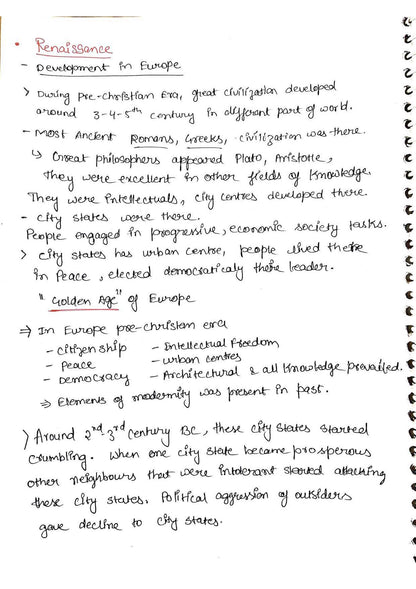 • Renaissance
- Development in Europe
> During Pre-Christian Era, great civilization developed
around 3-4-5th century in different part of world.
- Most Ancient Romans, Greeks, civilization was there.
↳ Great philosophers appeared Plato, Aristotle,
They were excellent in other fields of knowledge.
They were intellectuals, city centres developed there.
- city states were there.
People engaged in progressive, economic society tasks.
> city states has urban centre, people lived there
in Peace, elected democraticaly there leader.
"Golden Age" of Europe
⇒ In Europe pre-christian era
- Citizenship - Intellectual Freedom
- Peace - urban centres
- Democracy - Architectural & all knowledge prevailed.
⇒ Elements of modernity was present in past.
> Around 2nd-3rd century BC, these city states started
crumbling. When one city state became prosperous
other neighbours that were intolerant started attacking
these city states. Political aggression of outsiders
gave decline to city states.